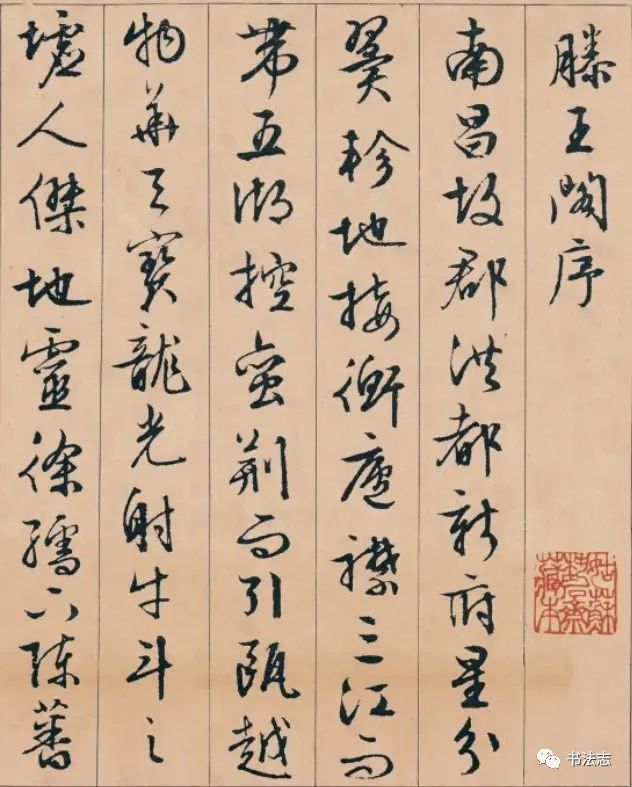 滕王閣序
南昌故郡洪都新府星分
翼軫地接衡廬襟三江而
帶五湖控蠻荊而引甌越
物華天寶龍光射牛斗之
墟人傑地靈徐孺下陳蕃
书法志